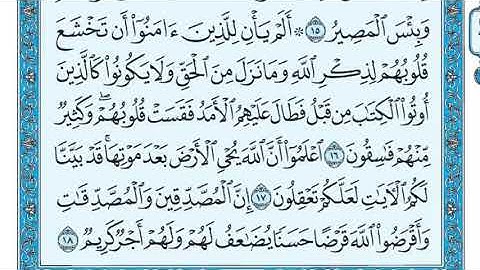 وَبِئۡسَ ٱلۡمَصِيرُ ١٥ ۞ أَلَمۡ يَأۡنِ لِلَّذِينَ ءَامَنُوٓاْ أَن تَخۡشَعَ
قُلُوبُهُمۡ لِذِكۡرِ ٱللَّهِ وَمَا نَزَلَ مِنَ ٱلۡحَقِّ وَلَا يَكُونُواْ كَٱلَّذِينَ
أُوتُواْ ٱلۡكِتَٰبَ مِن قَبۡلُ فَطَالَ عَلَيۡهِمُ ٱلۡأَمَدُ فَقَسَتۡ قُلُوبُهُمۡۖ وَكَثِيرٞ
مِّنۡهُمۡ فَٰسِقُونَ ١٦ ٱعۡلَمُوٓاْ أَنَّ ٱللَّهَ يُحۡيِ ٱلۡأَرۡضَ بَعۡدَ مَوۡتِهَاۚ قَدۡ بَيَّنَّا
لَكُمُ ٱلۡأٓيَٰتِ لَعَلَّكُمۡ تَعۡقِلُونَ ١٧ إِنَّ ٱلۡمُصَّدِّقِينَ وَٱلۡمُصَّدِّقَٰتِ
وَأَقۡرَضُواْ ٱللَّهَ قَرۡضًا حَسَنٗا يُضَٰعَفُ لَهُمۡ وَلَهُمۡ أَجۡرٞ كَرِيمٞ ١٨